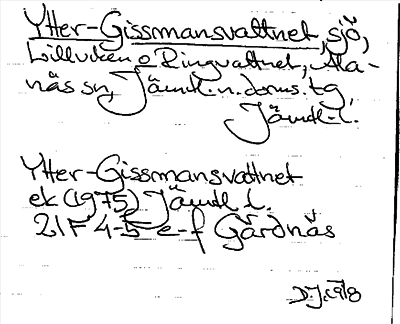 Ytter-Gissmansvattnet, sjö,
Lillviken o Ringvattnet, Ala-
näs sn, Jämtl. n. doms. tg,
Jämtl. l.
Ytter-Gissmansvattnet
ek (1975) Jämtl l.
21F 4-5 e-f Gårdnäs